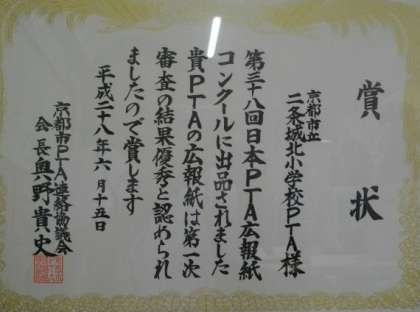 賞状
京都市立
二条城北小学校PTA様
第三十八回日本PTA広報紙
コンクールに出品されました
貴PTAの広報紙は第一次
審査の結果優秀と認められ
ましたので賞します
平成二十八年六月十五日
京都市PTA連絡協議会
会長奥野貴史